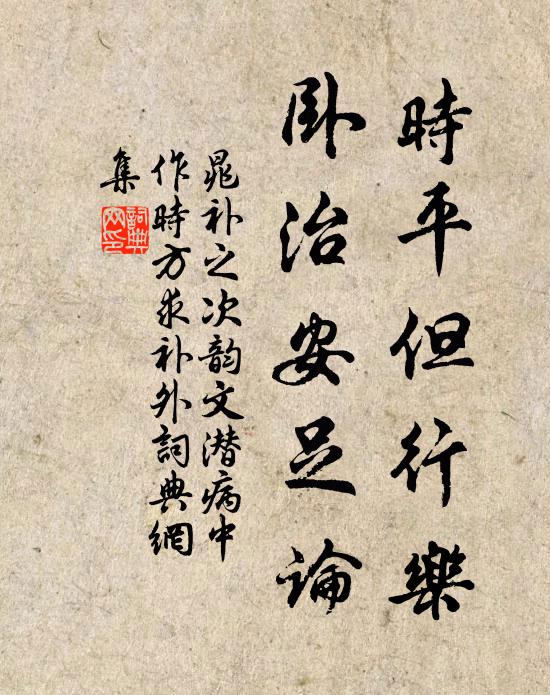 時平但行樂
卧治安足論
晁补之次韵文潜病中
作時方求补外詞典網
集
詞典網印